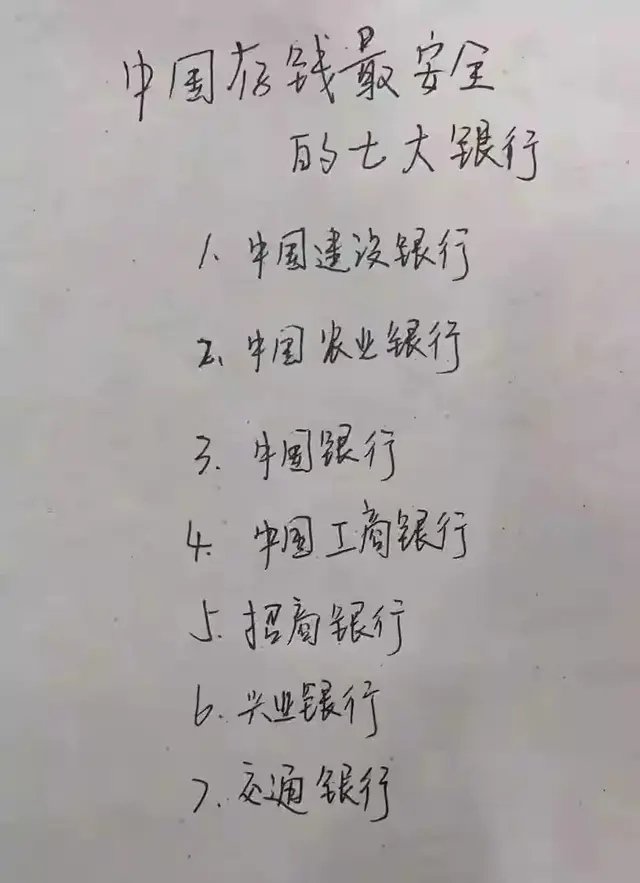 中国存钱最安全
的七大银行
1. 中国建设银行
2. 中国农业银行
3. 中国银行
4. 中国工商银行
5. 招商银行
6. 兴业银行
7. 交通银行